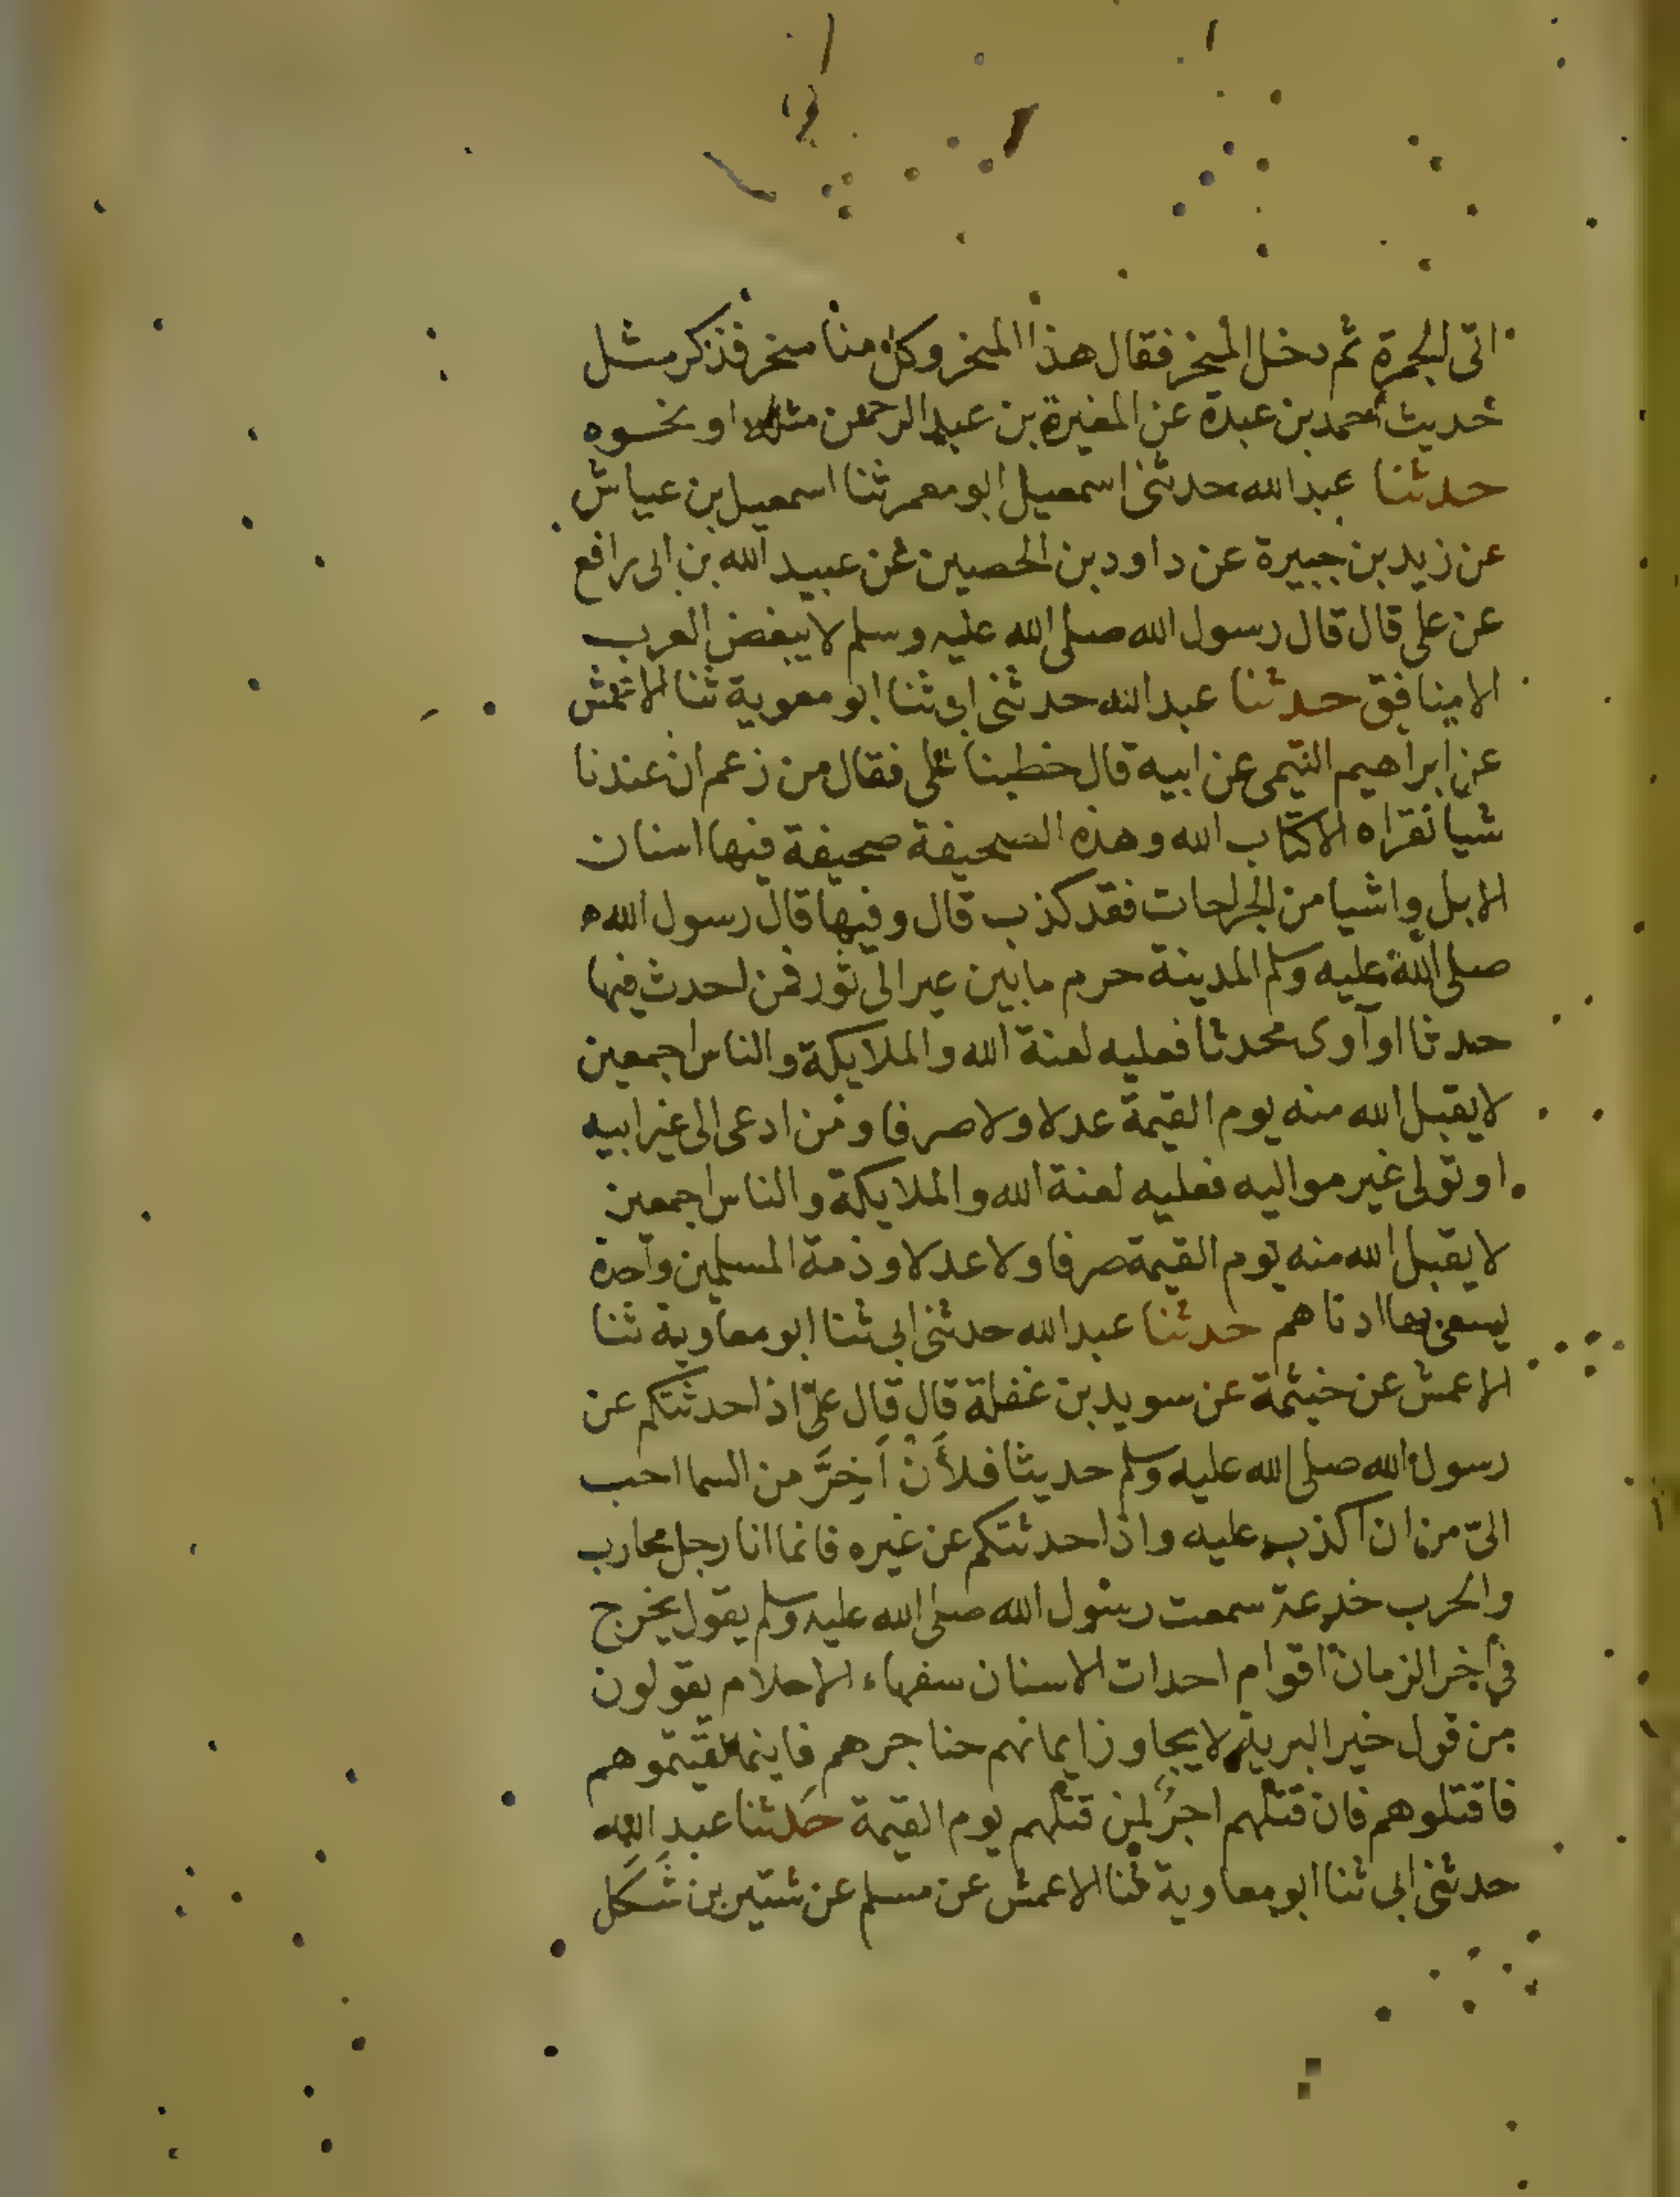 اتى الجمرة ثم دخل المنحر فقال هذا المنحر وكل منا منحر فذكر مثل
حديث احمد بن عبدة عن المغيرة بن عبد الرحمن مثله او نحوه
حدثنا عبد الله حدثنى اسمعيل ابو معمر ثنا اسمعيل بن عياش
عن زيد بن جبيرة عن داود بن الحصين عن عبيد الله بن ابى رافع
عن على قال قال رسول الله صلى الله عليه وسلم لا يبغض العرب
الا منافق حدثنا عبد الله حدثنى ابى ثنا ابو معوية ثنا الاعمش
عن ابراهيم التيمى عن ابيه قال خطبنا على فقال من زعم ان عندنا
شيا نقراه الا كتاب الله وهذه الصحيفة صحيفة فيها اسنان
الابل واشيا من الجراحات فقد كذب قال وفيها قال رسول الله
صلى الله عليه وسلم المدينة حرم ما بين عير الى ثور فمن احدث فيها
حدثا او آوى محدثا فعليه لعنة الله والملايكة والناس اجمعين
لا يقبل الله منه يوم القيمة عدلا ولا صرفا ومن ادعى الى غير ابيه
او تولى غير مواليه فعليه لعنة الله والملايكة والناس اجمعين
لا يقبل الله منه يوم القيمة صرفا ولا عدلا وذمة المسلمين واحدة
يسعى بها ادناهم حدثنا عبد الله حدثنى ابى ثنا ابو معاوية ثنا
الاعمش عن خيثمة عن سويد بن غفلة قال قال علىّ اذا حدثتكم عن
رسول الله صلى الله عليه وسلم حديثا فلأَنْ اَخِرَّ من السما احب
الىّ من ان اكذب عليه واذا حدثتكم عن غيره فانما انا رجل محارب
والحرب خدعة سمعت رسول الله صلى الله عليه وسلم يقول يخرج
فى اخر الزمان اقوام احداث الاسنان سفهاء الاحلام يقولون
من قول خير البرية لا يجاوز ايمانهم حناجرهم فاينما لقيتموهم
فاقتلوهم فان قتلهم اجرٌ لمن قتلهم يوم القيمة حدثنا عبد الله
حدثنى ابى ثنا ابو معاوية ثنا الاعمش عن مسلم عن شتير بن شَكَل